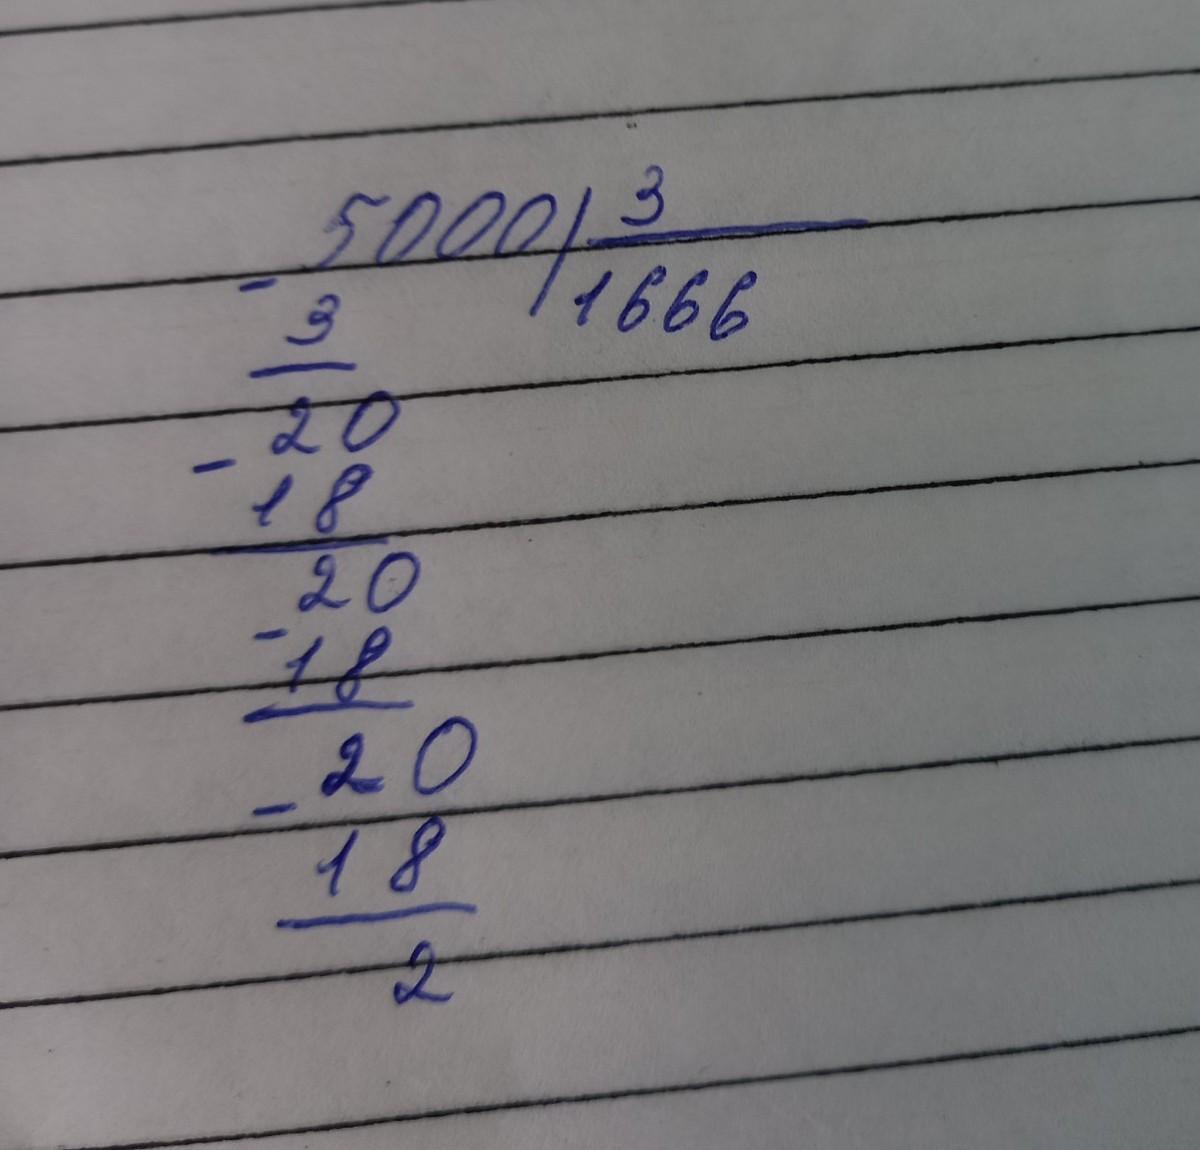 5000 3
- 1666
3
20
-
18
20
-
18
20
-
18
2